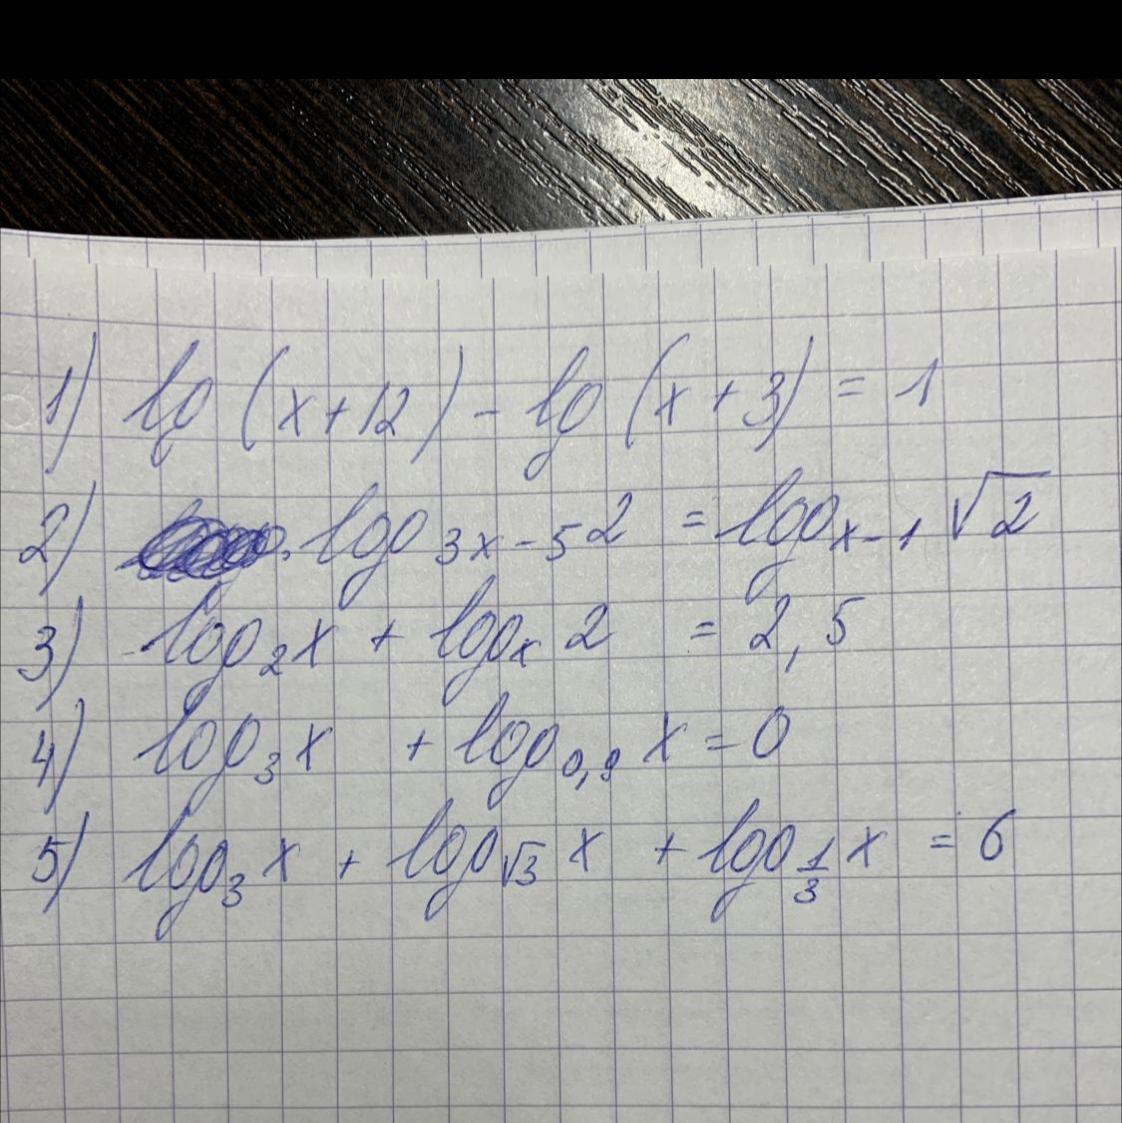 1) lg (x+12) - lg (x+3) = 1
2) log₃ₓ₋₅ 2 = logₓ₋₁ √2
3) log₂x + logₓ 2 = 2,5
4) log₃x + log₀,₉ x = 0
5) log₃x + log_√3 x + log_1/3 x = 6